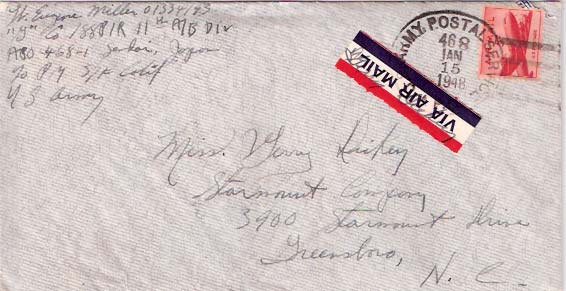 Lt. Eugene Miller
Co 188 PIR 11th A/B Div
APO 468-1
c/o P.M. S/F Calif
US Army
ARMY POSTAL SERVICE
468
JAN
15
1948
VIA AIR MAIL
Miss.
Starmount Company
3900 Starmount Drive
Greensboro,
N. C.